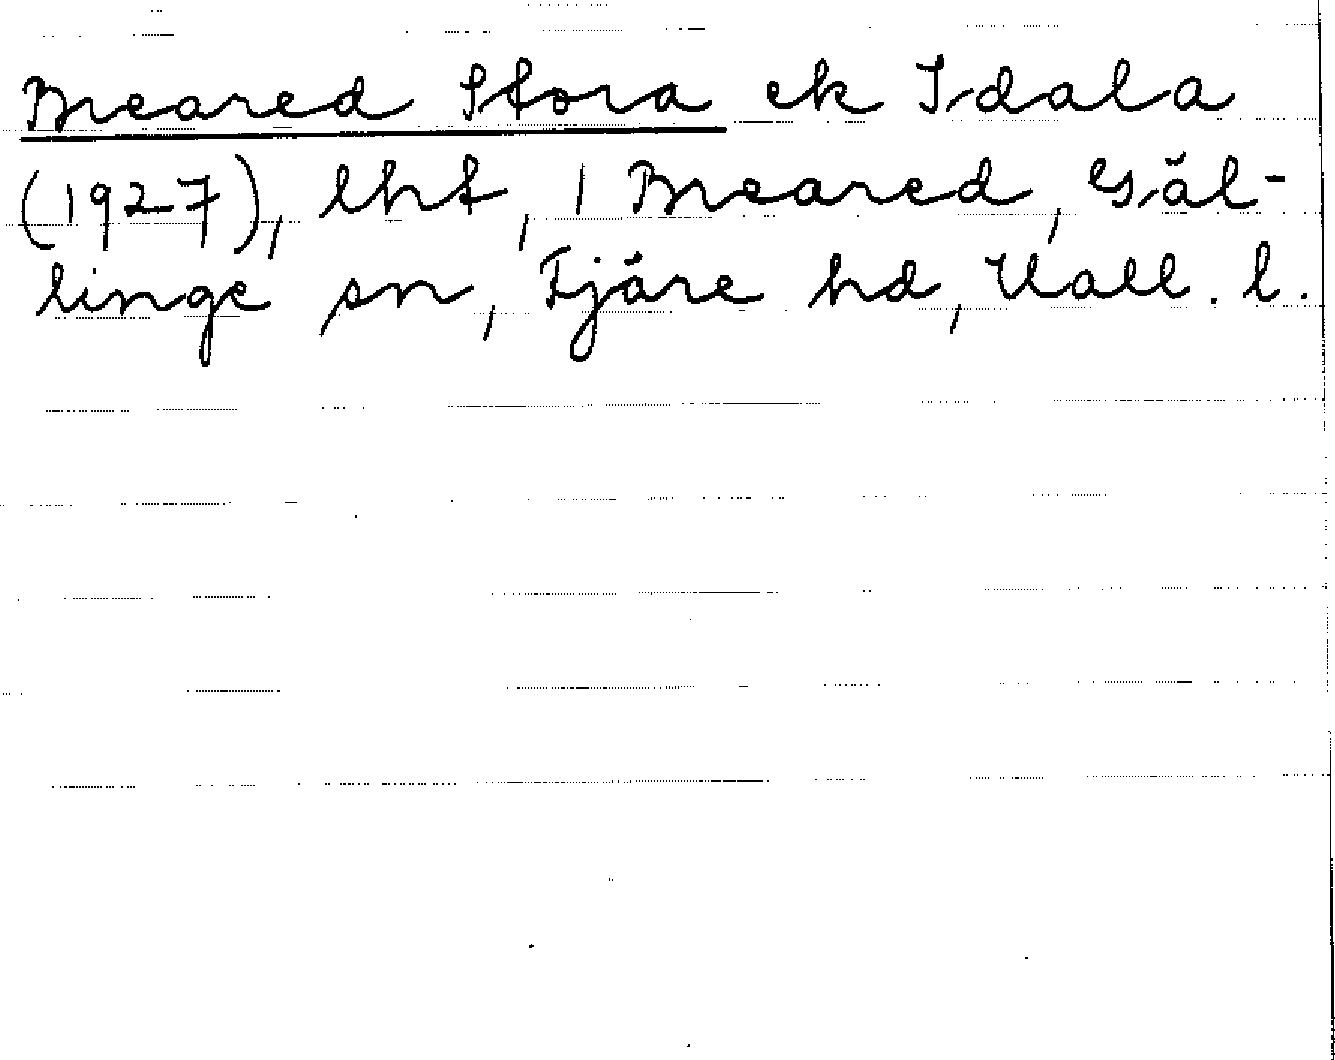 Breared Stora ek Idala
(1927), lht, 1 Breared, Gäl-
linge sn, Fjäre hd, Hall. l.